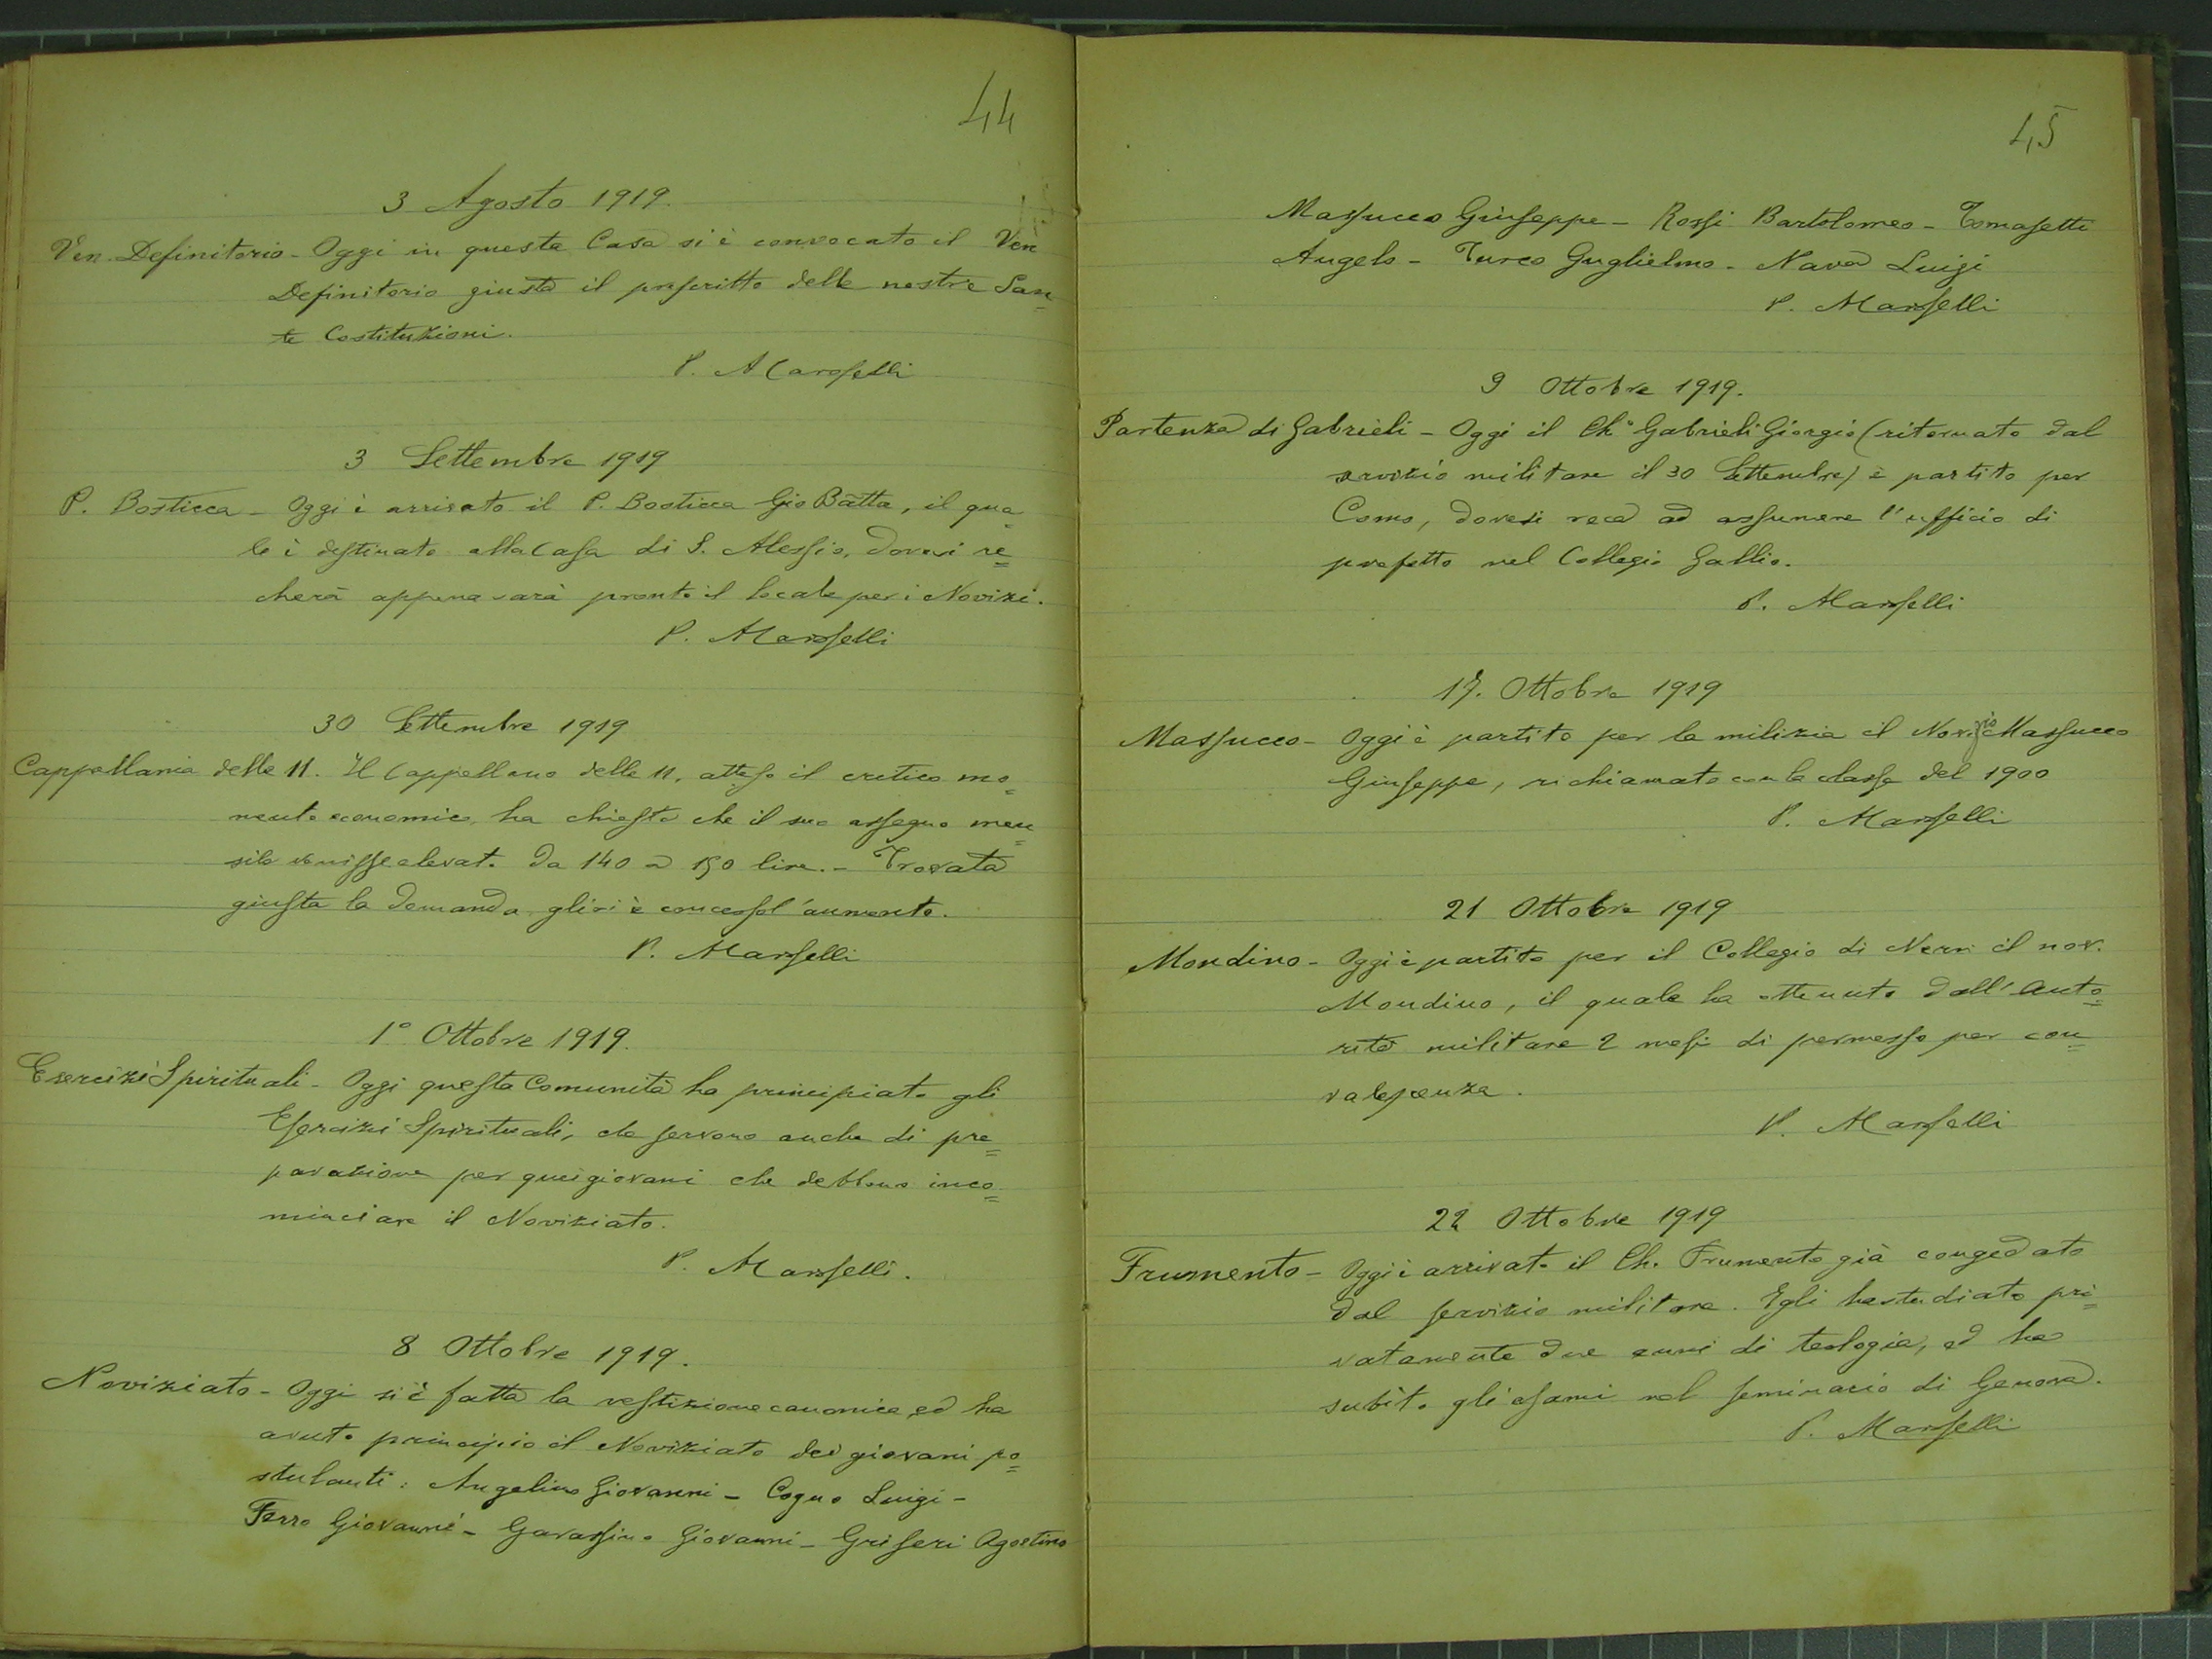 44
3 Agosto 1919.
Ven. Definitorio - Oggi in questa Casa si è convocato il Ven
Definitorio giusta il prescritto delle nostre San=
te Costituzioni.
P. Marosselli
3 Settembre 1919
P. Bosticca - Oggi è arrivato il P. Bosticca Gio Batta, il qua=
le è destinato alla Casa di S. Alessio, dove si re=
cherà appena sarà pronto il locale per i Novizi.
P. Marosselli
30 Settembre 1919
Cappellania delle 11. Il Cappellano delle 11, atteso il critico mo=
mento economico, ha chiesto che il suo assegno men=
sile venisse elevato da 140 a 150 lire. - Trovata
giusta la domanda gli si è concesso l'aumento.
P. Marosselli
1° Ottobre 1919.
Esercizi Spirituali - Oggi questa Comunità ha principiato gli
Esercizi Spirituali, che servono anche di pre=
parazione per quei giovani che debbono inco=
minciare il Noviziato.
P. Marosselli.
8 Ottobre 1919.
Noviziato - Oggi si è fatta la vestizione canonica, ed ha
avuto principio il Noviziato dei giovani po=
stulanti: Angelino Giovanni - Cogno Luigi -
Ferro Giovanni - Gavassino Giovanni - Griseri Agostino
45
Massucco Giuseppe - Rossi Bartolomeo - Tomasetti
Angelo - Turco Guglielmo - Nava Luigi
P. Marosselli
9 Ottobre 1919.
Partenza di Gabrieli - Oggi il Ch° Gabrieli Giorgio (ritornato dal
servizio militare il 30 Settembre) è partito per
Como, dove si reca ad assumere l'ufficio di
prefetto nel Collegio Gallio.
P. Marosselli
17. Ottobre 1919
Massucco - Oggi è partito per la milizia il Novizio Massucco
Giuseppe, richiamato con la classe del 1900
P. Marosselli
21 Ottobre 1919
Mondino - Oggi è partito per il Collegio di Nervi il nov.
Mondino, il quale ha ottenuto dall'auto=
rità militare 2 mesi di permesso per con=
valescenza.
P. Marosselli
22 Ottobre 1919
Frumento - Oggi è arrivato il Ch. Frumento già congedato
dal servizio militare. Egli ha studiato pri=
vatamente due anni di teologia, ed ha
subito gli esami nel seminario di Genova.
P. Marosselli